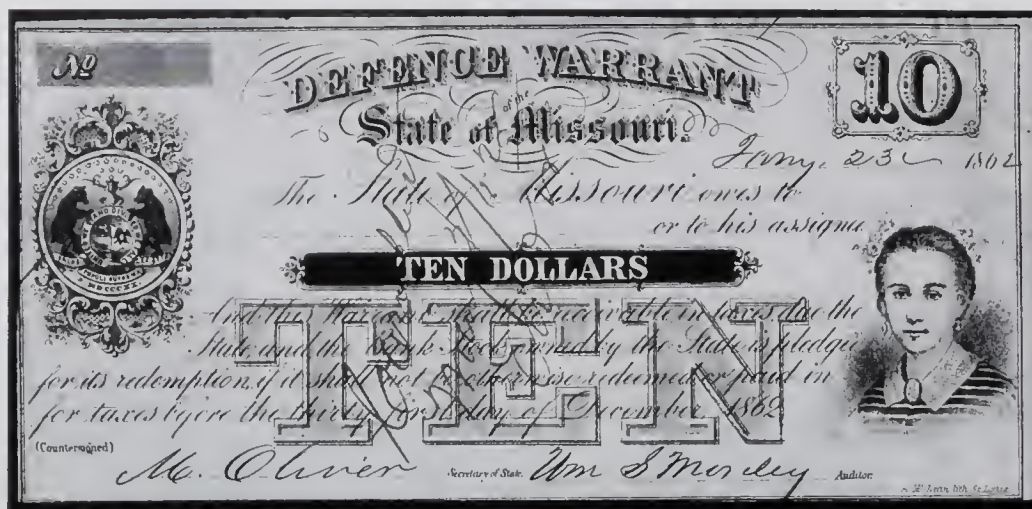 No
DEFENCE WARRANT
of the
State of Missouri.
10
Jany. 23 1862
The State of Missouri owes to
or to his assigns
TEN DOLLARS
TEN
And this Warrant shall be receivable in taxes due the
State and the Bank Stock owned by the State is pledged
for its redemption, if it shall not be otherwise redeemed or paid in
for taxes before the thirty first day of December, 1862
(Countersigned)
M. Oliver Secretary of State. Wm S Moseley Auditor.